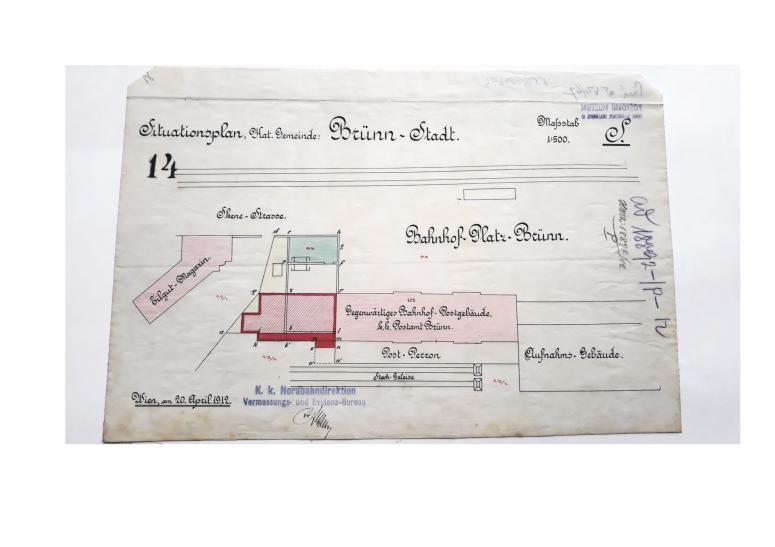 Situationsplan, Kat. Gemeinde: Brünn-Stadt.
Maßstab
1:500.
S.
14
POŠTOVNÍ MUZEUM
Skene-Strasse.
Bahnhof-Platz-Brünn.
Eilgut-Magazin.
Gegenwärtiges Bahnhof-Postgebäude,
k.k. Postamt Brünn.
Post-Perron
Aufnahms-Gebäude.
Stock-Geleise
Wien, am 20. April 1912.
K. k. Nordbahndirektion
Vermessungs- und Evidenz-Bureau